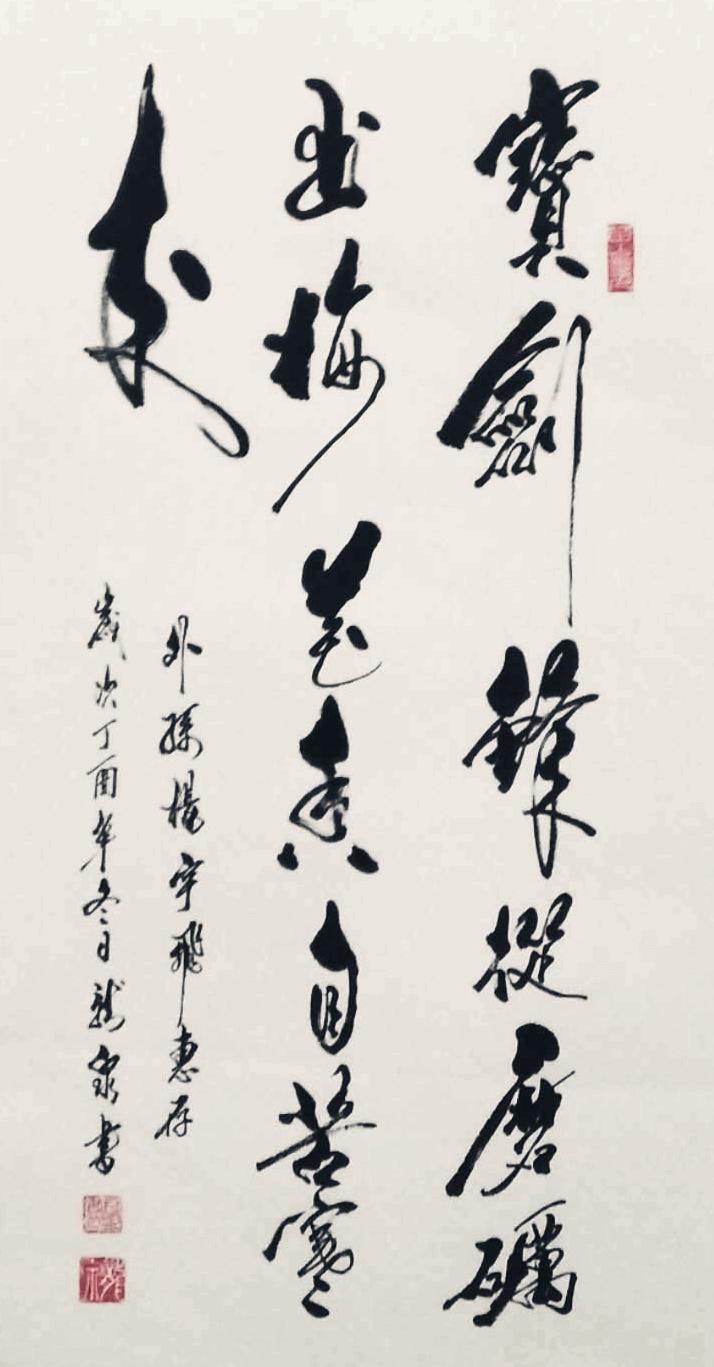 寶劍鋒從磨礪
出梅花香自苦寒
來
外孫楊宇飛惠存
歲次丁酉年冬日龍泉書